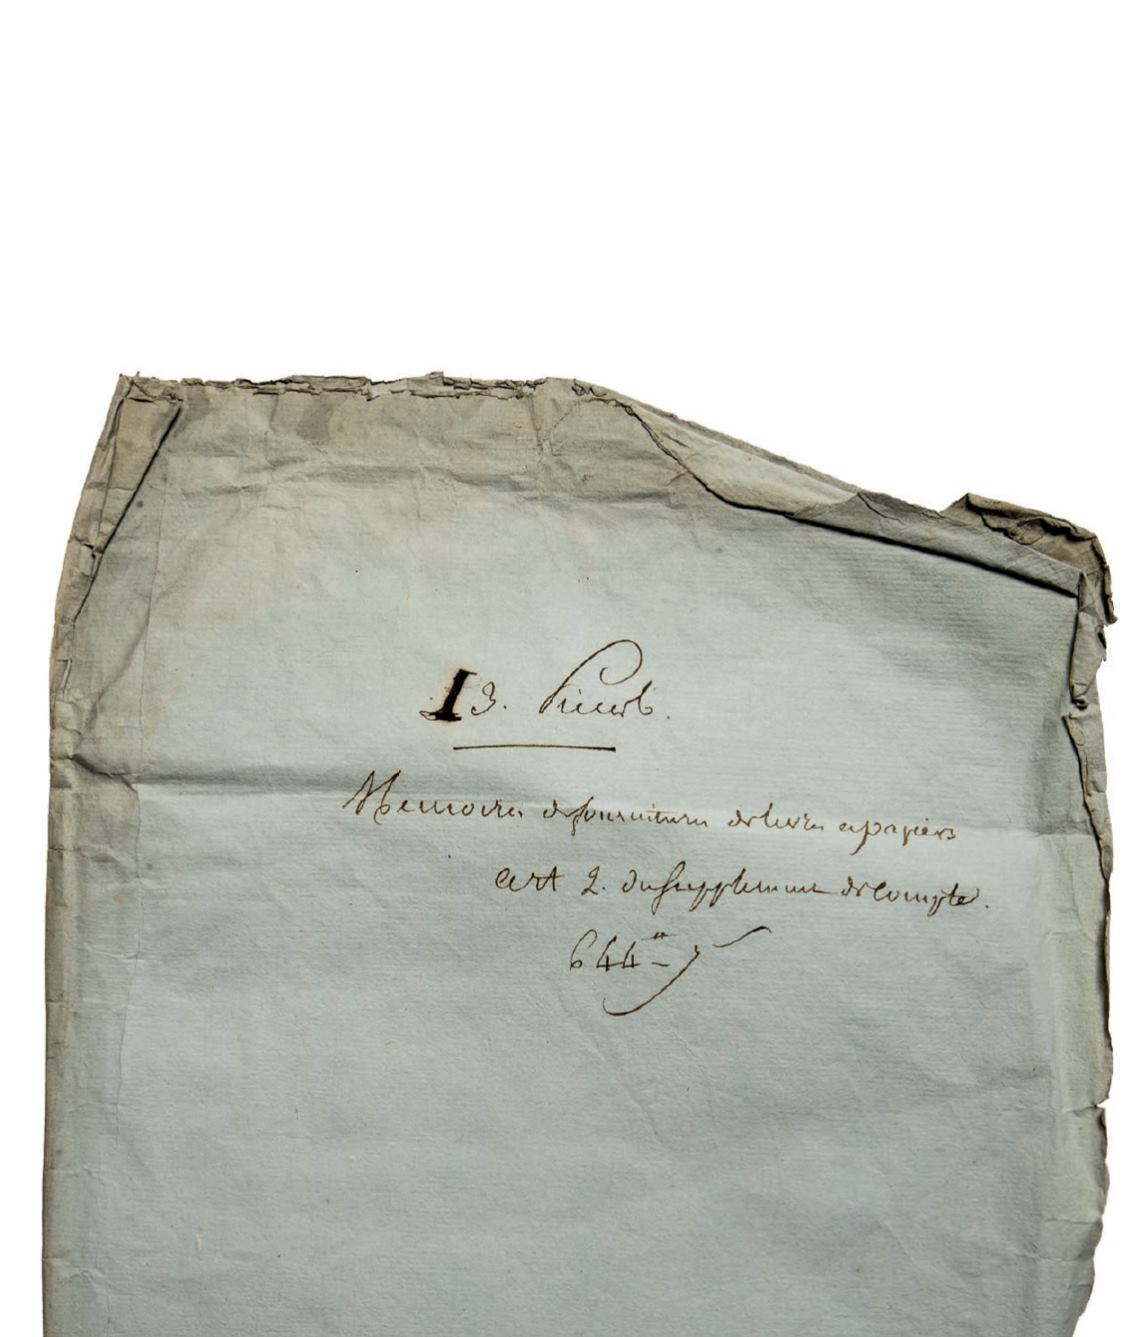 13. Pieces.
Memoires de fournitures de livres a papiers
art 2. du supplement de compte.
644"